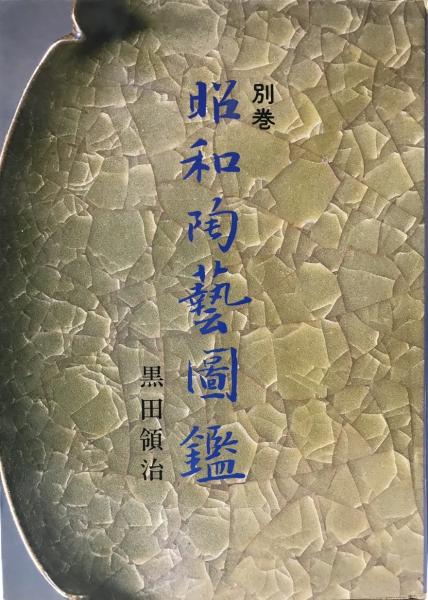 別巻
昭和陶藝圖鑑
黒田領治